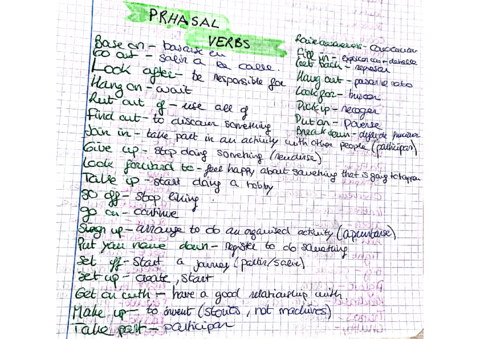 PRHASAL
VERBS
Base on - basarse en
Go out - salir a la calle
Look after - be responsible for
Hang on - await
Run out of - use all of
Find out - to discover something
Join in - take part in an activity with other people (participar)
Give up - stop doing something (rendirse)
Look forward to - feel happy about something that is going to happen
Take up - start doing a hobby
go off - stop liking
go on - continue
Sign up - arrange to do an organised activity (apuntarse)
Put you name down - register to do something
Set off - Start a journey (partir/salir)
Set up - create, start
Get on with - have a good relationship with
Make up - to invent (stories, not machines)
Take part - participar
Fill in -
back - regresar
Hang out - pasar el rato
Look for - buscar
Pick up - recoger
Put on - Ponerse
Break down -